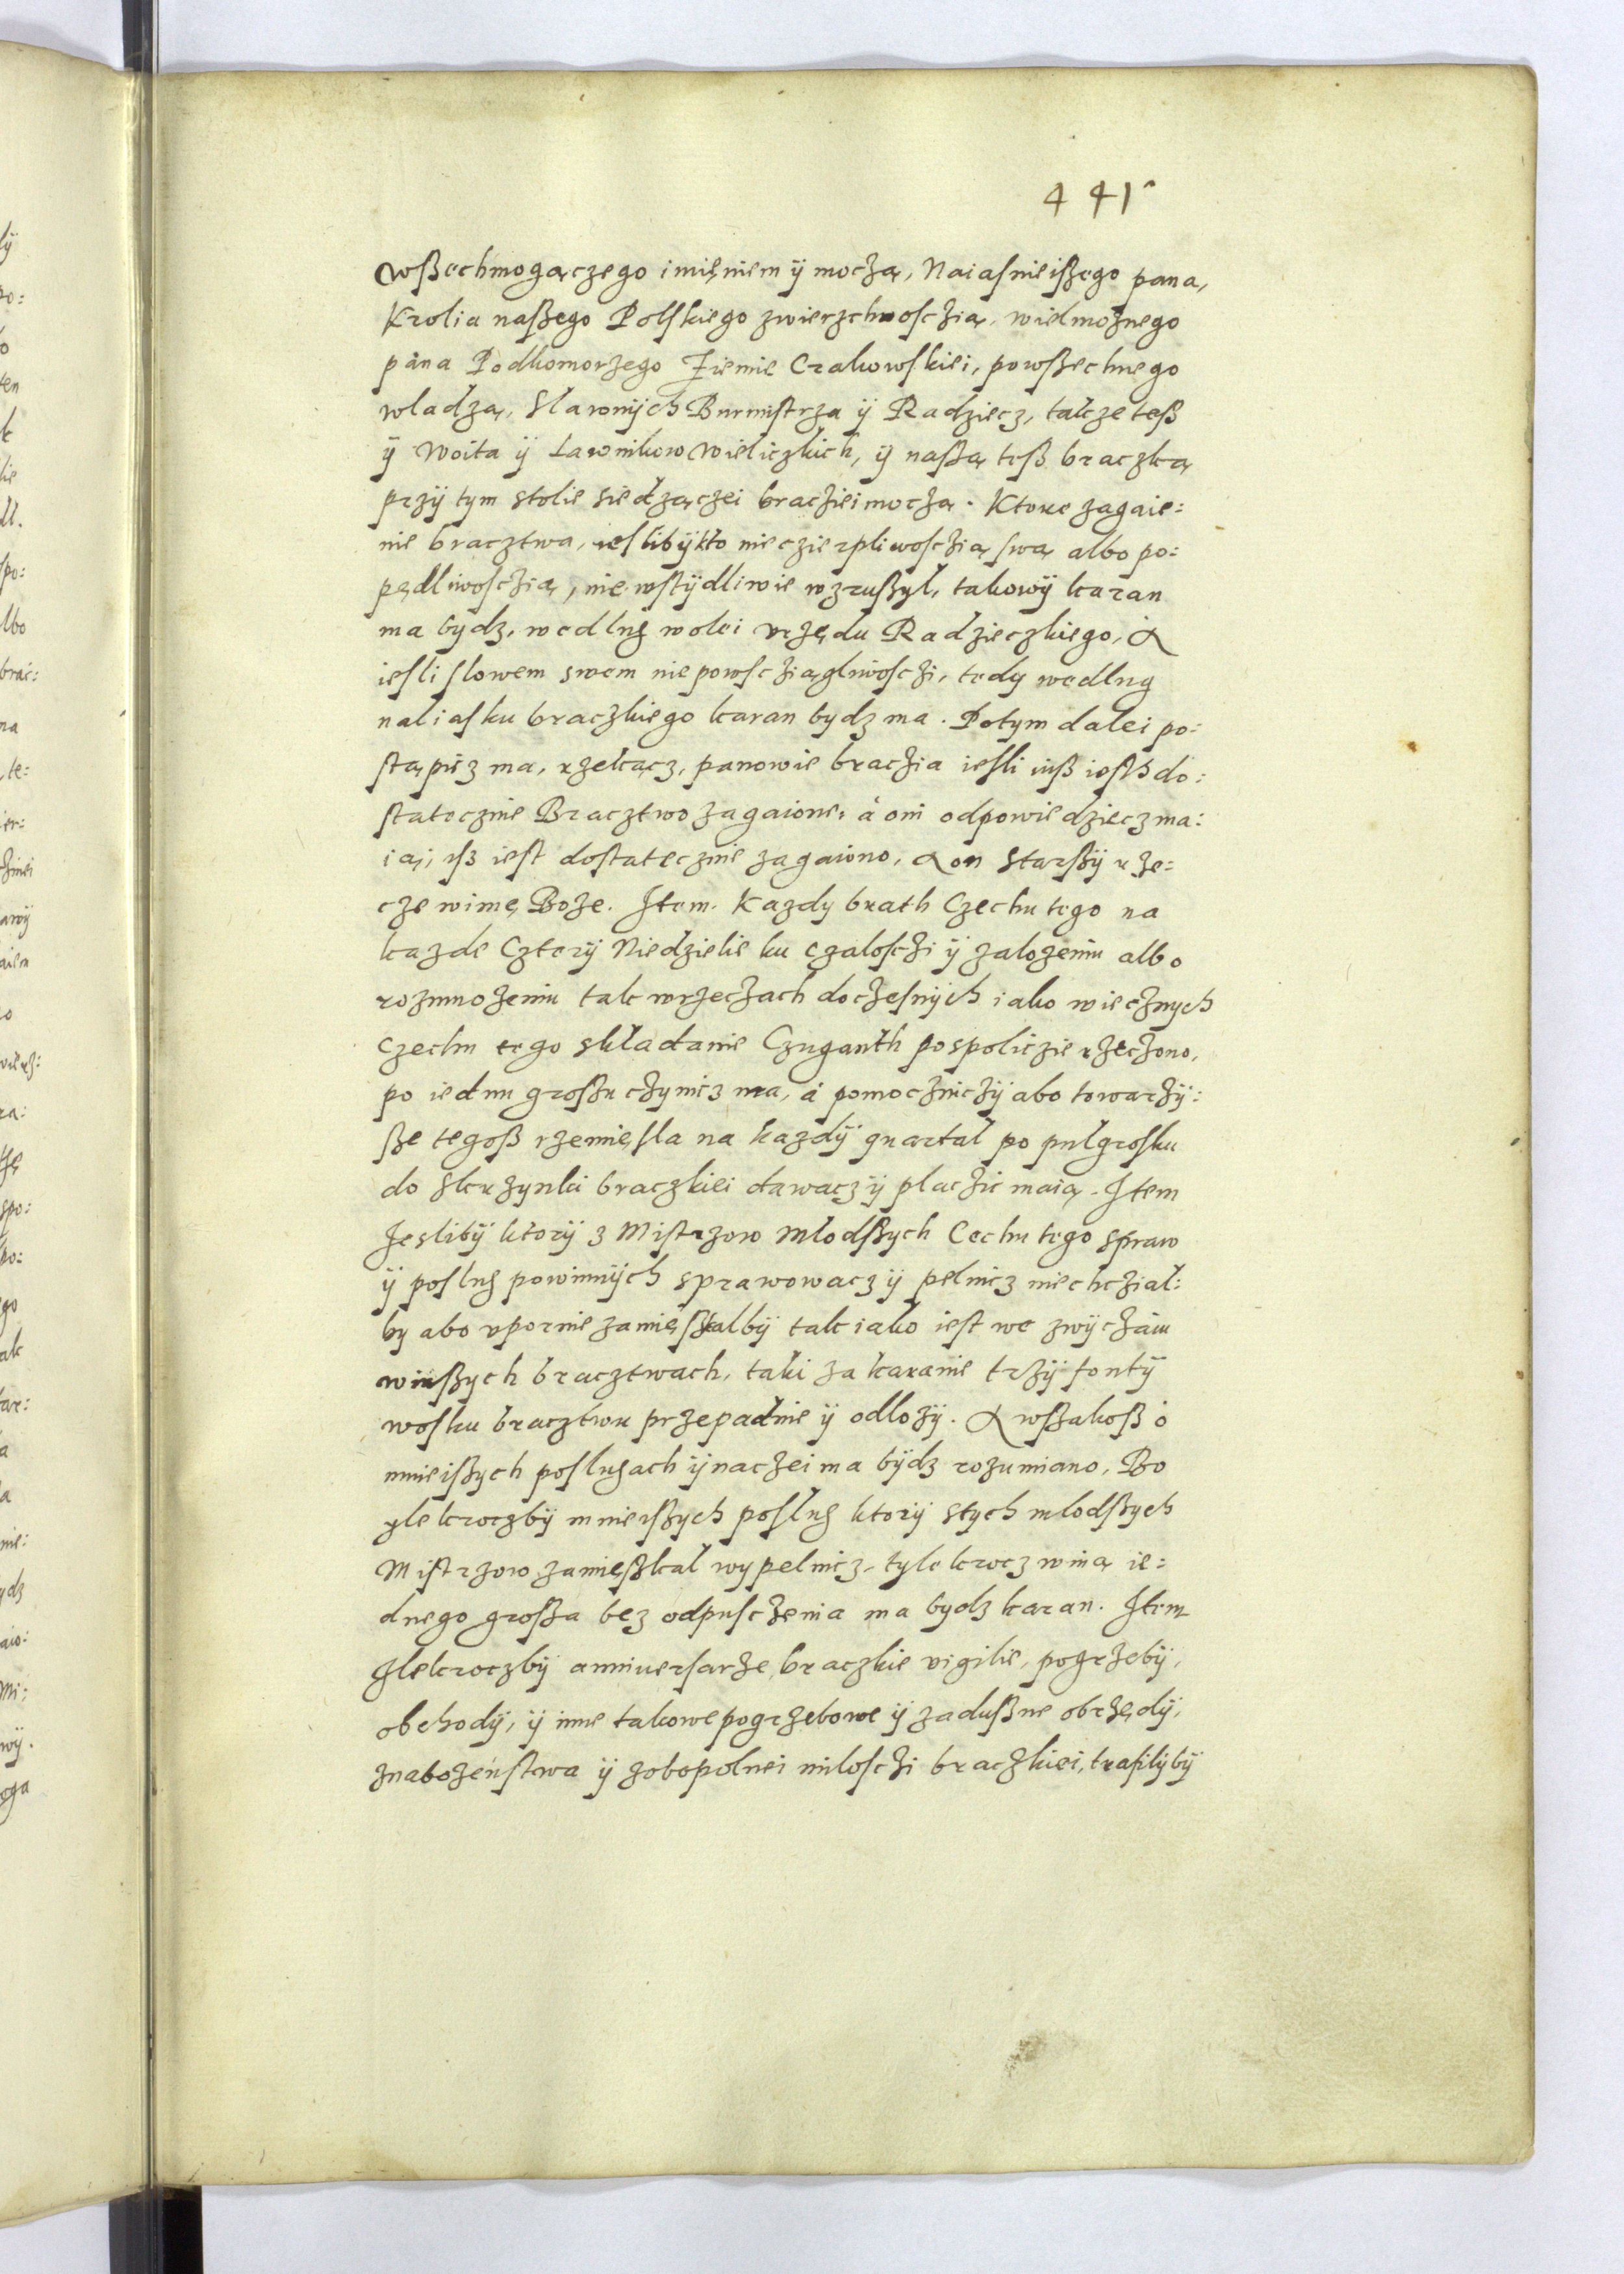 441
wßechmogączego imięniem ÿ moczą, Naiasnieißego pana,
Krolia naßego Polskiego zwierzchnosczią, wielmożnego
pana Podkomorzego Ziemie Crakowskiei, powßechnego
wladzą, Slawnÿch Burmistrza ÿ Radziecz, takze teß
ÿ Woita ÿ Ławnikow Wieliczkich, ÿ naßą teß braczką
przÿ tym stolie siedzączei braciei moczą. Ktore zagaie:
nie bractzwa, ieslibÿ kto nieczierpliwosczią swą albo po:
pędliwosczią, nie wstÿdliwie wzrußÿl, takowÿ karan
ma bydz, wedlug wolei vrzędu Radzieczkiego, A
iesli slowem swem niepowsczia̧gliwosczi, tedy wedlug
naliasku braczkiego karan bydz ma. Potym dalei po:
stąpicz ma, rzekącz, panowie braczia iesli iuß iesth do:
statecznie Bractzwo zagaione, à oni odpowiedziecz ma:
ią, ysz iest dostatecznie zagaiono, A on Starßÿ rze:
cze wimę Boże. Item. Kazdy brath Czechu tego na
kazde Czterÿ Niedzielie ku czalosczi ÿ zalozeniu albo
rozmnozeniu tak wrzeczach doczesnÿch iako wiecznych
Czechu tego składanie Czuganth pospoliczie rzeczono,
po iednu großu czynicz ma, á pomocznicżÿ abo towarzÿ:
ße tegoß rzemięsla na kazdÿ quartal po pulgrosku
do Skrzynki braczkiei dawacz ÿ płaczic maią. Item
Jeslibÿ ktorÿ z Mistrzow Młodßych Cechu tego spraw
ÿ poslug powinnÿch sprawowacz ÿ pelnicz niechcział:
by abo vpornie zamięßkalbÿ tak iako iest we zwÿczaiu
winßych bractzwach, taki za karanie trzÿ fontÿ
wosku bractzwu przepadnie ÿ odlożÿ. A wßakoß o
mnieißych poslugach ÿnaczei ma bÿdz rozumiano, Bo
ÿlekroczbÿ mnieißych posług ktorÿ stych mlodßych
Mistrzow zamięßkal wypelnicz, tylekrocz winą ie:
dnego großa bez odpusczenia ma bydz karan. Item
Ilekroczbÿ anniuersarze braczkie vigilie, pogrzebÿ,
obchodÿ, ÿ inne takowe pogrzebowe ÿ zadußne obrzędÿ,
znabożeństwa ÿ zobopolnei milosczi braczkiei, trafilÿbÿ